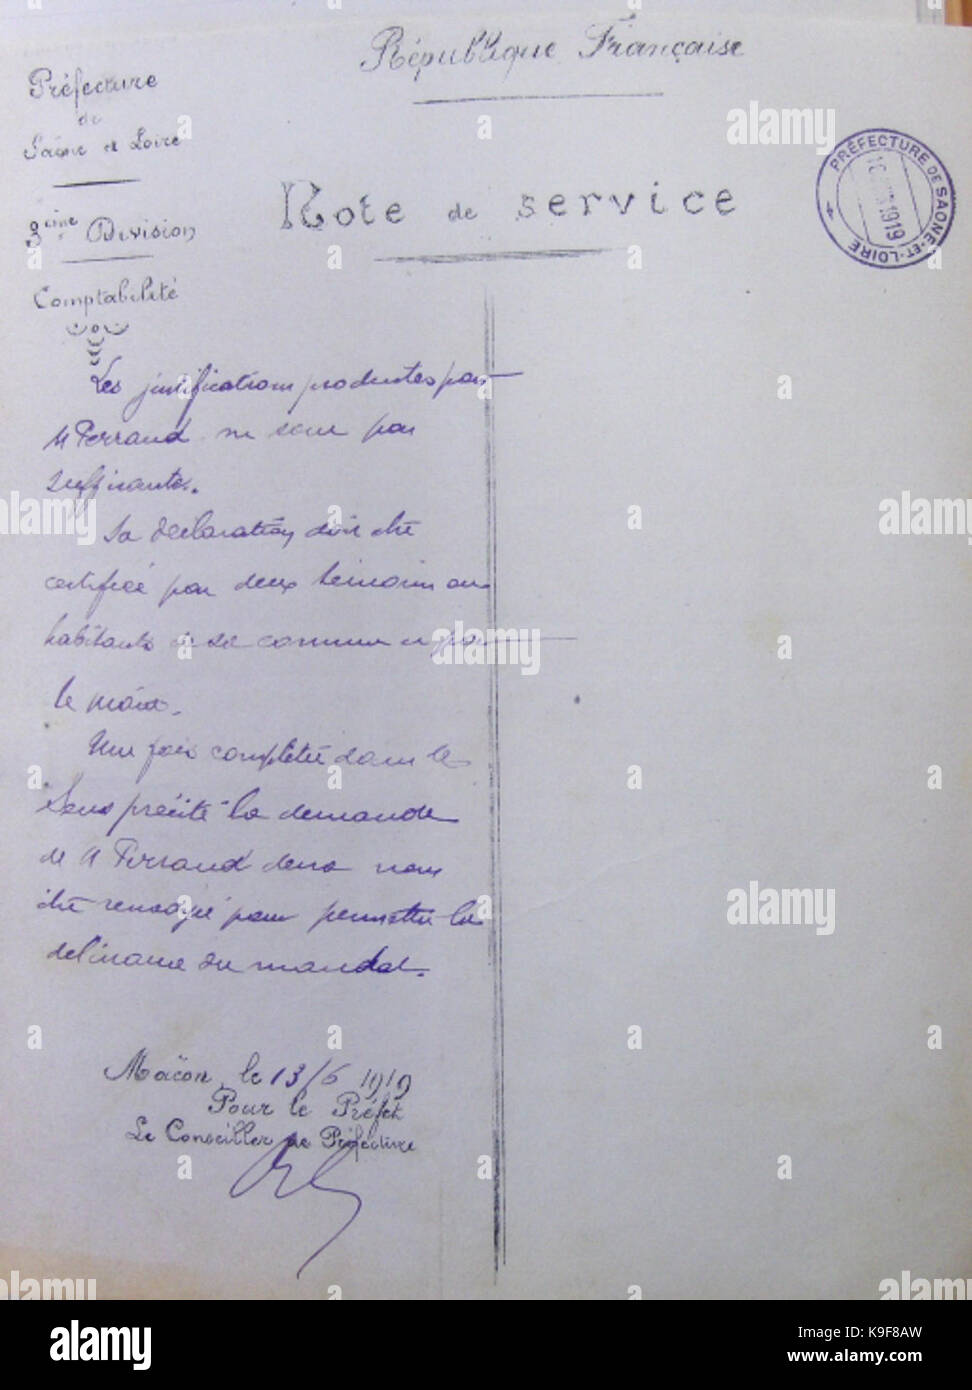 République Française
Préfecture
de
Saône et Loire
3ème Division
Comptabilité
Note de service
PRÉFECTURE DE SAONE-ET-LOIRE
1919
Les justifications produites par
M Ferraud ne sont pas
suffisantes.
Sa déclaration doit être
certifiée par deux témoins ou
habitants de sa commune et par
le maire.
Une fois complétée dans le
sens précité la demande
de M Ferraud devra nous
être renvoyée pour permettre la
délivrance du mandat.
Macon, le 13/6 1919
Pour le Préfet
Le Conseiller de Préfecture
alamy
Image ID: K9F8AW
www.alamy.com